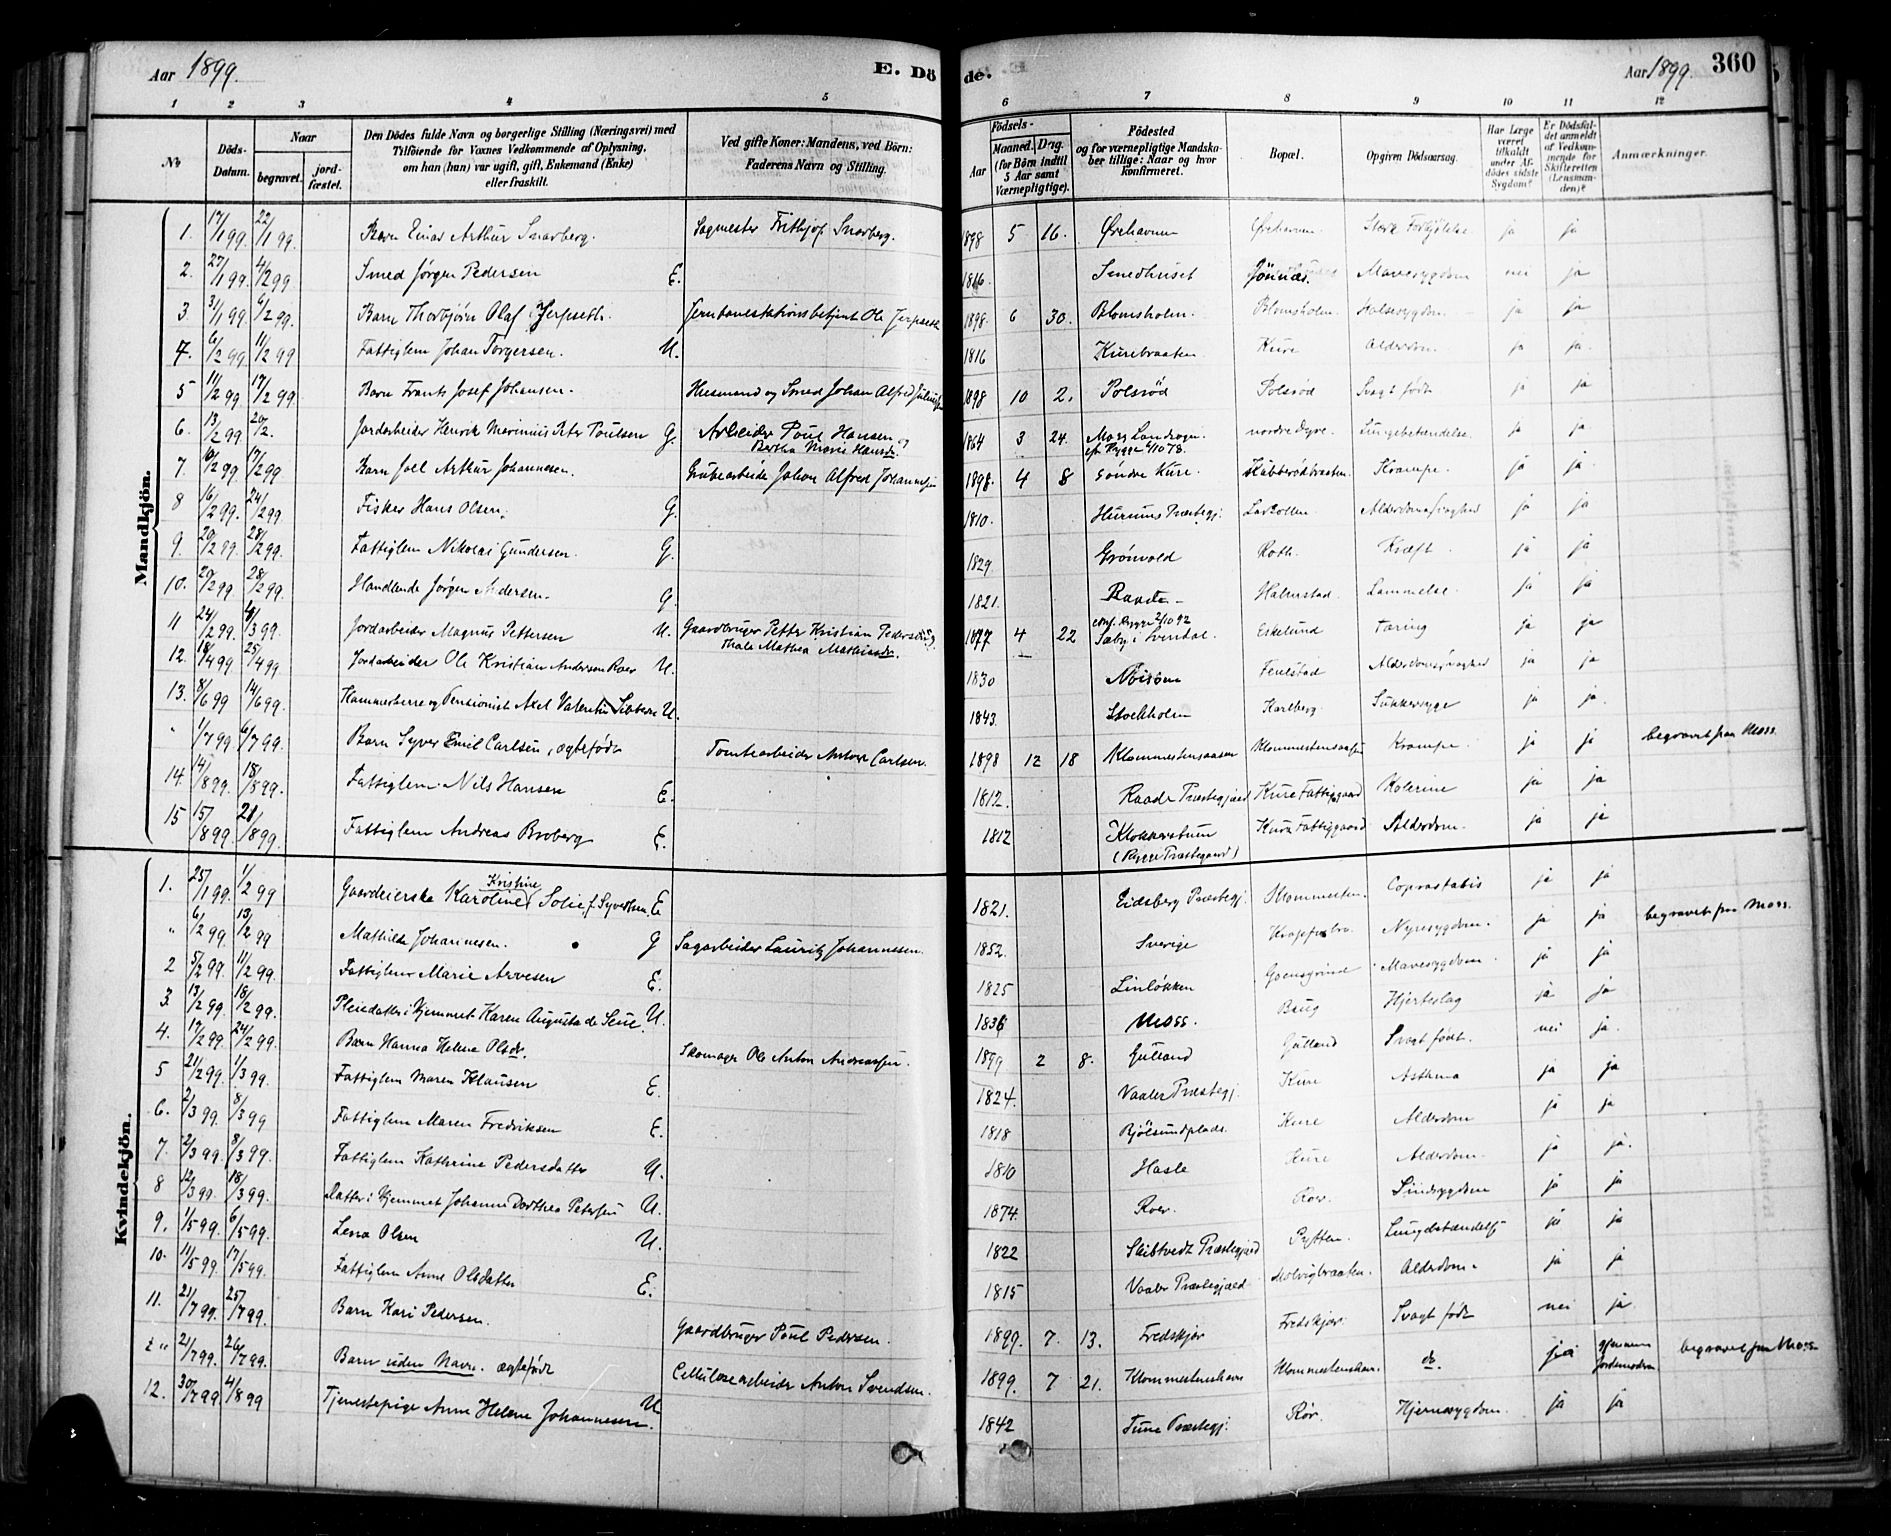 Aar 1899. E. Dö
de. Aar 1899. 360
1 2 3 4 5 6 7 8 9 10 11 12
No
Döds-Datum.
Naar begravet. jordfæstet.
Den Dödes fulde Navn og borgerlige Stilling (Næringsvei) med Tilföiende for Voxnes Vedkommende af Oplysning, om han (hun) var ugift, gift, Enkemand (Enke) eller fraskilt.
Ved gifte Koner: Mandens, ved Börn: Faderens Navn og Stilling.
Födsels-
Aar Maaned. Dag. (for Börn indtil 5 Aar samt Værnepligtige).
Födested og for værnepligtige Mandskaber tillige: Naar og hvor konfirmeret.
Bopæl.
Opgiven Dödsaarsag.
Har Læge været tilkaldt under Afdødes sidste Sygdom?
Er Dödsfaldet anmeldt af Vedkommende for Skifteretten (Lensmanden)?
Anmærkninger.
Mandkjön.
1. 17/1 99. 22/1 99. Barn Einar Arthur Snarberg. Sagmester Frithjof Snarberg. 1898 5 16. Ørehavnen Ørehavnen Sterk Forkjølelse ja ja
2. 27/1 99. 4/2 99. Smed Jörgen Pedersen E. 1816 Smedhuset Jönnæs. Mavesygdom nei ja
3. 31/1 99. 6/2 99. Barn Thorbjörn Olaf Jerpseth. Jernbanestationsbetjent Ole Jerpseth 1898. 6 30. Blomsholm. Blomsholm Halssygdom ja ja
4. 6/2 99 11/2 99 Fattiglem Johan Torgersen. U. 1816 Kurebraaten Kure Alderdom ja ja.
5 11/2 99 17/2 99. Barn Frants Josef Johansen. Husmand og Smed Johan Alfred 1898 10 2. Polsröd Polsröd Svagt født ja ja
6. 13/2 99. 20/2. Jordarbeider Henrik Marinius Peter Poulsen G. Arbeider Poul Hansen og Bertha Marie Hansdr. 1864 3 24. Moss Landsogn. Rygge 6/10 78. nordre Dyre. Lungebetændelse. ja ja
7. 6/2 99 17/2 99. Barn Joel Arthur Johannesen. Grubearbeide Johan Alfred Johannesen 1898. 4 8 söndre Kure. Krampe. ja ja
8 16/2 99. 24/2 99. Fisker Hans Olsen. G. 1810. Hurums Præstegj. Larkollen Alderdomssvaghed ja ja
9. 20/2 99. 28/2 99. Fattiglem Nikolai Gundersen. G. 1829. Grönvold Roth. Kræft ja ja
10. 20/2 99. 28/2 99. Handlende Jörgen Andersen. G. 1821. Raade Halmstad. Lammelse. ja ja
11 24/2 99. 4/3 99. Jordarbeider Magnus Pettersen U. Gaardbruger Petter Kristian Pedersen og Thale Mathea Mathiasdr. 1877 4 22 conf. Rygge 2/10 92 Sæby i Svendal. Eskelund Tæring ja ja
12. 18/4 99 25/4 99 Jordarbeider Ole Kristian Andersen Roer U. 1830 Fenlstad Alderdomssvaghed ja ja
13. 8/6 99 14/6 99. Kammerherre og Pensionist Axel Valentin Sibbern U. 1843. Stockholm Karlberg. Sukkersyge ja ja.
" 1/7 99 6/7 99. Barn Syver Emil Carlsen, ægtefødt Tomtearbeider Anton Carlsen. 1898 12 18 Klommestensaasen Klommestensaasen Krampe. ja ja begravet paa Moss.
14. 14/8 99. 18/8 99. Fattiglem Nils Hansen E. 1812. Raade Præstegjæld Kure Fattiggaard Kolerine ja ja
15 15/8 99. 21/8 99. Fattiglem Andreas Broberg E. 1812 Klokkerstuen (Rygge Præstegaard) Kure Fattiggaard Alderdom. ja ja
Kvindekjön.
1. 25/1 99. 1/2 99 Gaardeierske Karoline Kristine Solie f. Syvertsen. E 1821. Eidsberg Præstegj. Klommesten Coprostasis ja ja
" 6/2 99. 13/2 99 Mathilde Johannesen. G Sagarbeider Lauritz Johannesen. 1852. Sverige Nyresygdom. ja ja begravet paa Moss.
2 5/2 99. 11/2 99. Fattiglem Marie Arvesen E. 1825 Linlökken Mavesygdom. ja ja
3. 13/2 99. 18/2 99. Pleiedatter i Hjemmet Karen Augusta de Seue. U. 1836 Moss. Baug Hjerteslag ja ja
4. 17/2 99. 24/2 99. Barn Hanna Helene Olsdr. Skomager Ole Anton Andreassen. 1899 2 8. Gulland Gulland Svagt født. nei ja.
5 21/2 99. 1/3 99. Fattiglem Maren Klausen E. 1824. Vaaler Præstegj. Kure Asthma ja ja
6. 2/3 99. 8/3 99 Fattiglem Maren Fredriksen E. 1818 Bjölsundplads. Kure Alderdom ja ja
7. 2/3 99. 8/3 99. Fattiglem Kathrine Pedersdatter U. 1810 Hasle Kure Alderdom. ja ja.
8 12/3 99 18/3 99. Datter i Hjemmet Johanne Dorthea Petersen U. 1874. Roer. Roer. Sindssygdom ja ja
9. 1/5 99. 6/5 99. Lena Olsen U. 1822 Skibtvedt Præstegjæld Pytten. Lungebetændelse ja ja
10. 11/5 99. 17/5 99. Fattiglem Anne Olsdatter E. 1815 Vaaler Præstegjæld Alderdom. ja ja
11. 21/7 99. 25/7 99. Barn Kari Pedersen. Gaardbruger Poul Pedersen. 1899. 7. 13. Fredskjør Fredskjør. Svagt født nei ja
21/7 99. 26/7 99. Barn uden Navn. ægtefødt Cellulosearbeider Anton Svendsen. 1899. 7 21. Klommestenshavn Klommestenshavn. do. ja gjennem Jordemoderen begravet paa Moss
12. 30/7 99. 4/8 99 Tjenestepige Anne Helene Johannesen. U 1842 Tune Præstegj. Rör. Hjernesygdom. ja ja